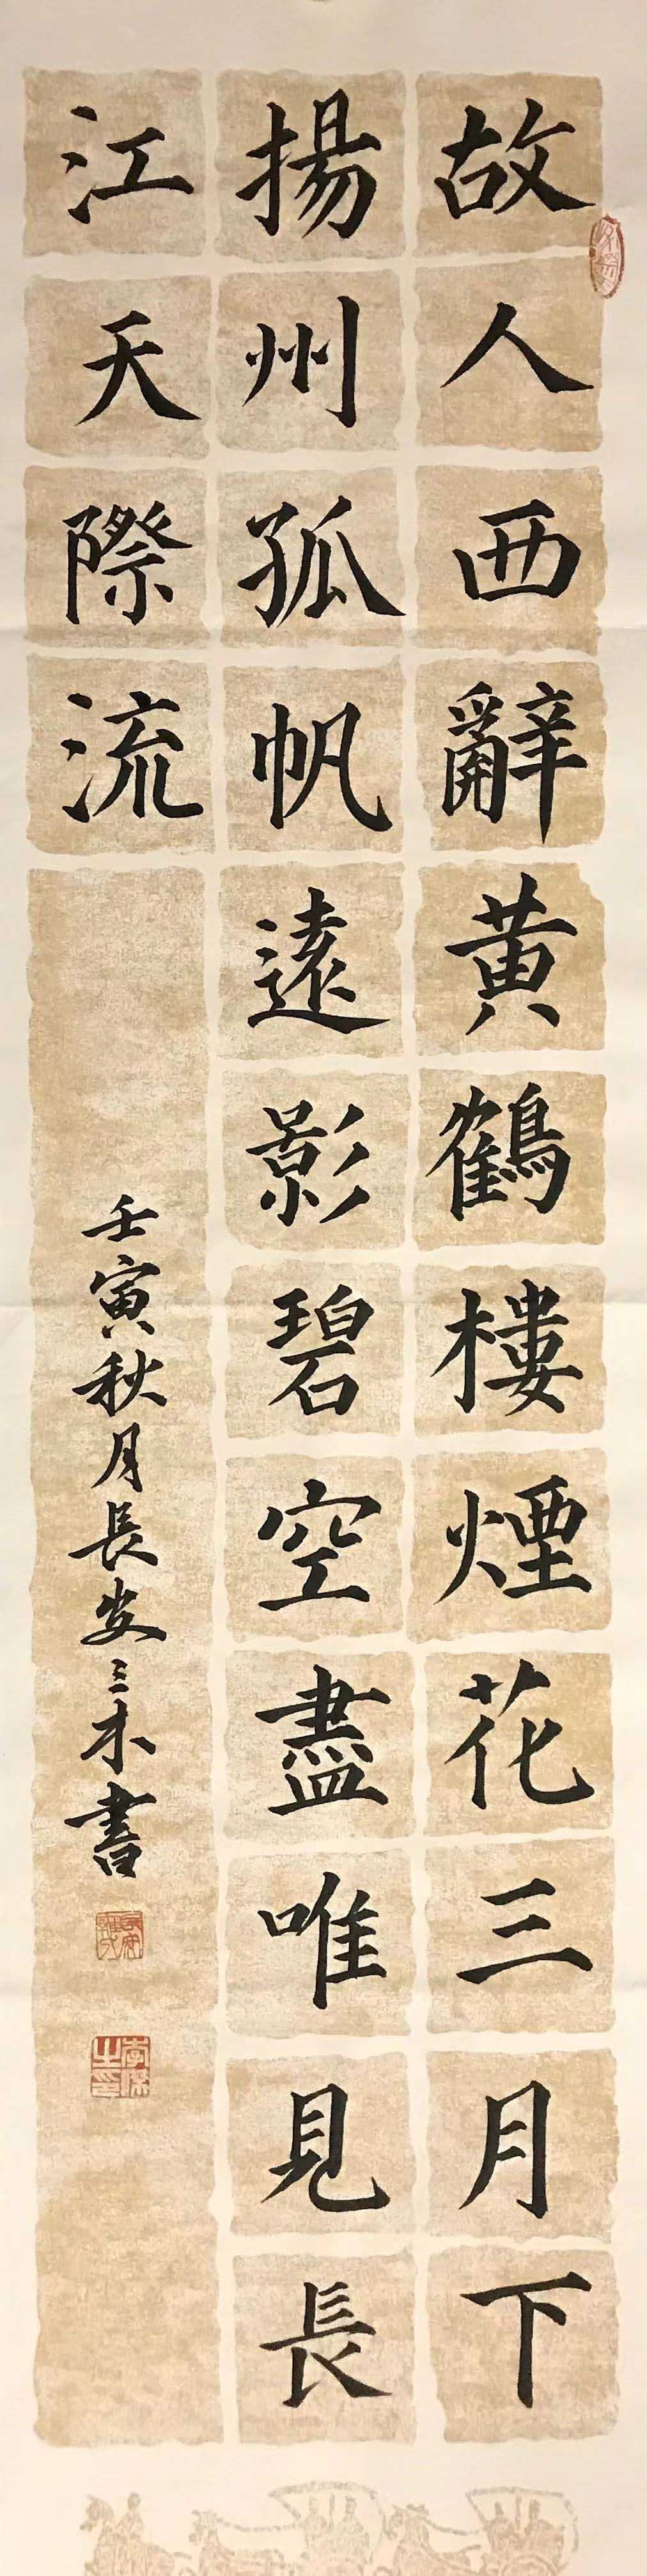 故人西辭黄鶴樓煙花三月下
揚州孤帆遠影碧空盡唯見長
江天際流
壬寅秋月長安三木書